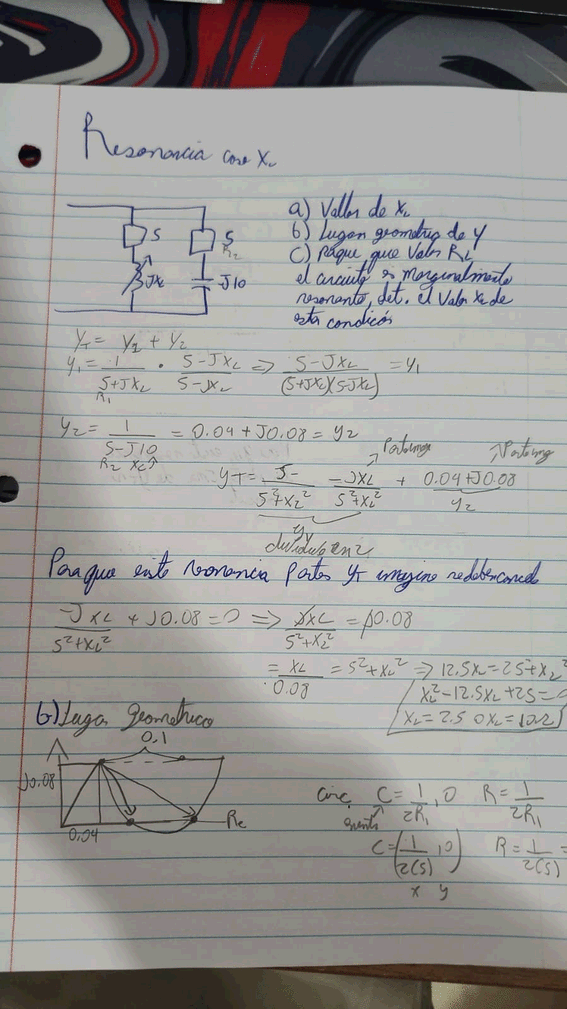 Resonancia caso X_L
a) Vallor de X_L
5
5
R_2
b) Lugar geometrico de Y
c) paque, que valor R_L
JX_L
-J10
el circuito es marginalmente
resonante, det. el valor X_L de
esta condición
Y_T = Y_1 + Y_2
Y_1 = 1/(5+JX_L) · (5-JX_L)/(5-JX_L) ⇒ (5-JX_L)/((5+JX_L)(5-JX_L)) = Y_1
R_1
Y_2 = 1/(5-J10) = 0.04 + J0.08 = Y_2
R_2 X_C
Parte imag
Parte imag
Y_T = 5/(5²+X_L²) - JX_L/(5²+X_L²) + 0.04+J0.08
Y_1
Y_2
dividido en 2
Para que exista resonancia partes Y_T
-JX_L/(5²+X_L²) + J0.08 = 0 ⇒ JX_L/(5²+X_L²) = J0.08
= X_L/0.08 = 5²+X_L² ⇒ 12.5X_L = 25+X_L²
X_L² - 12.5X_L + 25 = 0
X_L = 2.5 o X_L = 10
b) Lugar Geometrico
0.1
J0.08
0.04
Re
Circ, C = 1/2R_1, 0 R = 1/2R_1
C = (1/2(5), 0) R = 1/2(5) =
x y